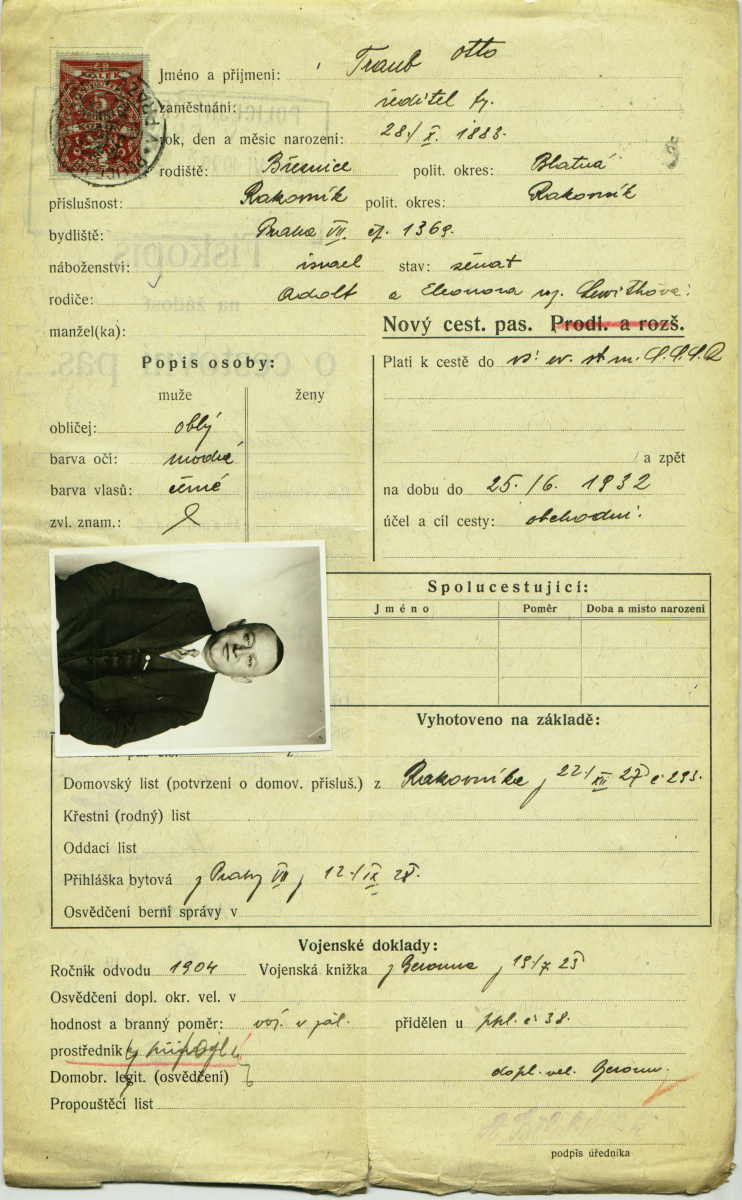 Jméno a přijmení: Traub Otto
zaměstnání: ředitel
rok, den a měsíc narození: 28./X. 1883.
rodiště: Březnice polit. okres: Blatná
příslušnost: Rakovník polit. okres: Rakovník
bydliště: Praha VII. čp. 1369.
náboženství: israel stav: ženat
rodiče: Adolf a Eleonora roz. Lewithova
manžel(ka):
Nový cest. pas. Prodl. a rozš.
Popis osoby:
muže ženy
obličej: oblý
barva očí: modré
barva vlasů: černé
zvl. znam.:
Platí k cestě do vš. ev. st. m. S.S.S.R
a zpět
na dobu do 25./6. 1932
účel a cíl cesty: obchodní.
Spolucestující:
Jméno Poměr Doba a místo narození
Vyhotoveno na základě:
Domovský list (potvrzení o domov. přísluš.) z Rakovníka z 22./XII 27 č 293.
Křestní (rodný) list
Oddací list
Přihláška bytová z Prahy VII z 12./IX 28.
Osvědčení berní správy v
Vojenské doklady:
Ročník odvodu 1904 Vojenská knižka z Berouna z
Osvědčení dopl. okr. vel. v
hodnost a branný poměr: voj. v zál. přidělen u č 38.
prostředník
Domobr. legit. (osvědčení) dopl. vel. Beroun.
Propouštěcí list
podpis úředníka